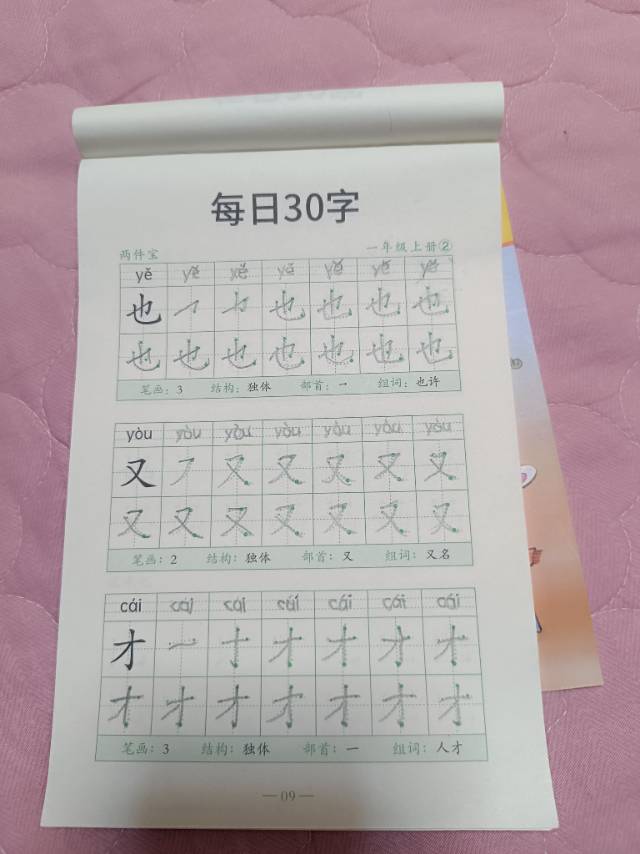 每日30字
两件宝 一年级上册②
yě yě yě yě yě yě yě
也 也 也 也 也 也
也 也 也 也 也 也 也
笔画：3 结构：独体 部首：一 组词：也许
yòu yòu yòu yòu yòu yòu yòu
又 又 又 又 又 又
又 又 又 又 又 又 又
笔画：2 结构：独体 部首：又 组词：又名
cái cái cái cái cái cái cái
才 才 才 才 才
才 才 才 才 才 才 才
笔画：3 结构：独体 部首：一 组词：人才
— 09 —